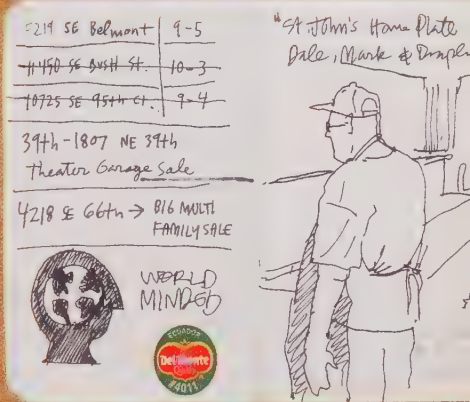 5219 SE Belmont 9-5
11450 SE Bush St. 10-3
10725 SE 95th Ct. 9-4
39th - 1807 NE 39th
Theater Garage Sale
4218 SE 66th → BIG MULTI
FAMILY SALE
WORLD
MINDED
ECUADOR
Del Monte
Quality
#4011
"St. John's Home Plate
Dale, Mark &